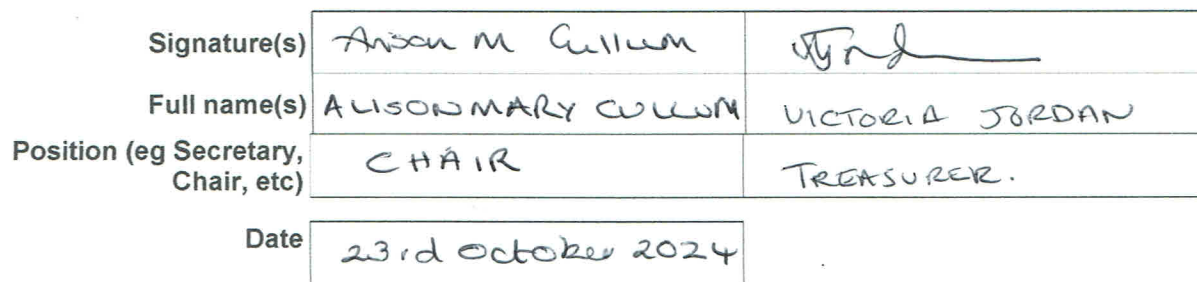 Signature(s) Alison M Cullum
Full name(s) ALISON MARY CULLUM VICTORIA JORDAN
Position (eg Secretary, CHAIR TREASURER.
Chair, etc)
Date 23rd October 2024